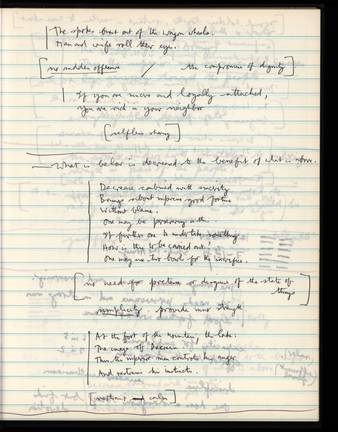 The spokes burst out of the wagon wheels.
Man and wife roll their eyes.
[no sudden offence / the compromise of dignity]
If you are sincere and loyally attached,
you are rich in your neighbor
[selfless sharing]
What is below is decreased to the benefit of what is above.
Decrease combined with sincerity
Brings about supreme good fortune
Without blame.
One may be persevering in this.
It furthers one to undertake something
How is this to be carried out?
One may use two bowls for the sacrifice.
[no need for pretense or disguise of the state of things]
simplicity provide inner strength
At the foot of the mountain, the lake:
The image of Decrease
Thus the superior man controls his anger
And restrains his instincts.
[ and calm]